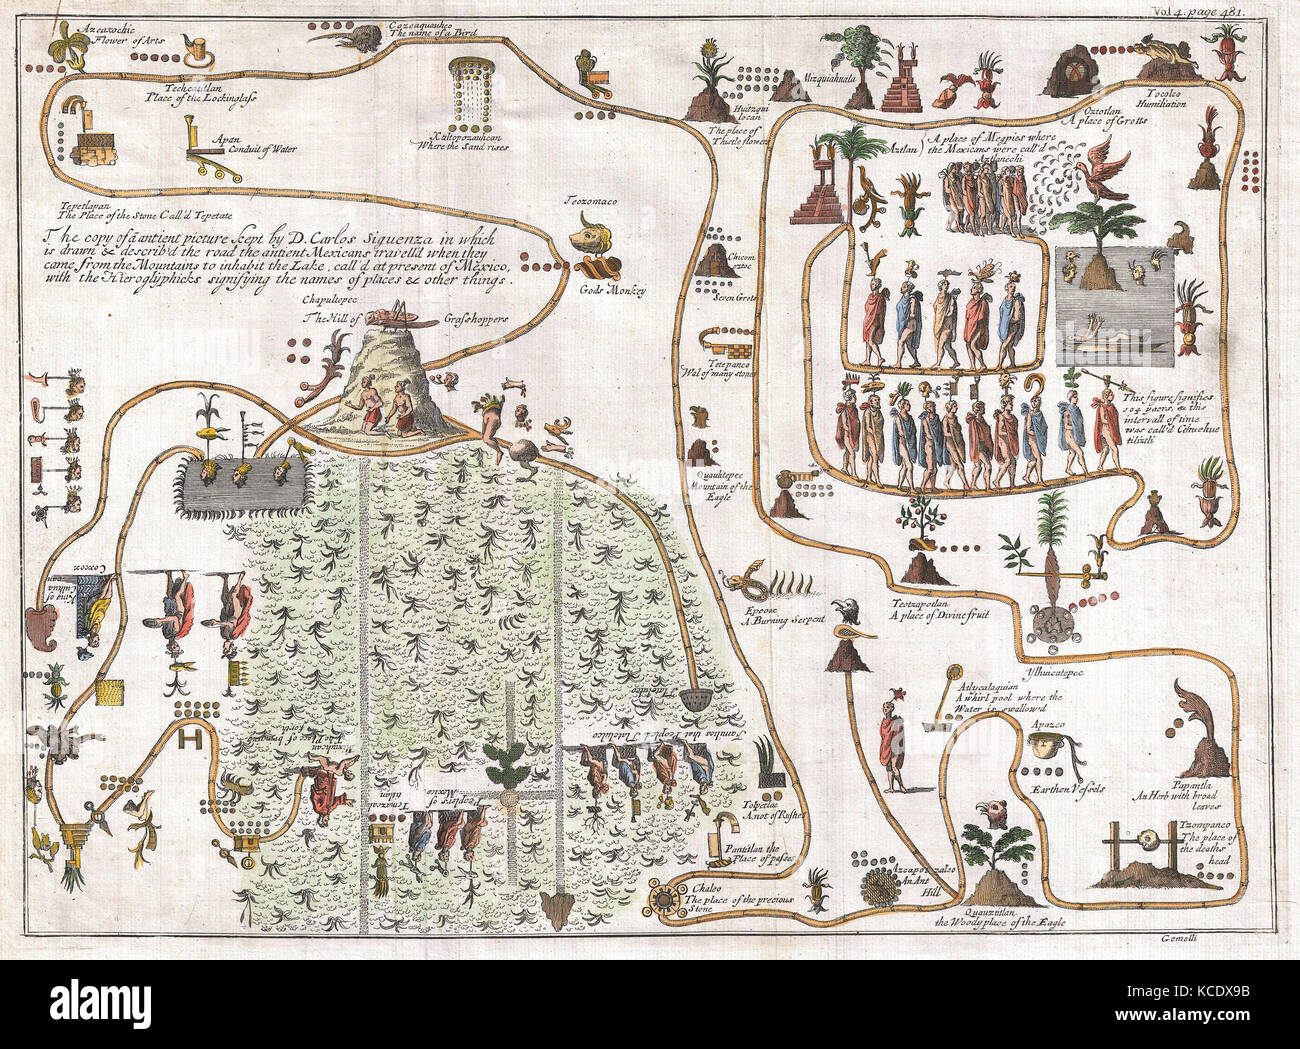 Vol 4. page 481.
Azcaxochic
Flower of Arts
Cozcaquauhco
The name of a Bird
Techcatitlan
Place of the Lockinglass
Apan
Conduit of Water
Xaltopozauhcan
Where the Sand rises
Huitzqui
locan
The place of
Thistle flowers
Mizquiahuala
Oztotlan
A place of Grotts
Tocolco
Humiliation
Aztlan
A place of Megpies where
the Mexicans were call'd
Aztlanechi
Tepetlapan
The Place of the Stone Call'd Tepetate
Teozomaco
Gods Monkey
The copy of a antient picture kept by D. Carlos Siguenza in which
is drawn & describ'd the road the antient Mexicans travell'd when they
came from the Mountains to inhabit the Lake, call'd at present of Mexico,
with the Hieroglyphicks signifying the names of places & other things.
Chapultepec
The Hill of Grasshoppers
Chicom
oztoc
Seven Grots
Tetepanco
Wal of many stones
Quauhtepec
Mountain of the
Eagle
This figure signifies
104 years, & this
intervall of time
was call'd Cehuehue
tilizli
Epcoac
A Burning Serpent
Teotzapotlan
A place of Divine fruit
Ylhuicatepec
Atlycalaquian
A whirl pool where the
Water is swallow'd
Apazco
Earthen Vessels
Papantla
An Herb with broad
leaves
Tzompanco
The place of
the deaths
head
Coxox
King of
Culhua
can
Mixiuhcan
The Place of bringing
forth
Peoples of
Mexico
Tenuxcan
Families that Peopl'd Tlatelulco
Tlatelulco
Tolpetlac
A not of Rushes
Pantitlan the
Place of passes
Chalco
The place of the precious
Stone
Azcapotzalco
An Ant
Hill
Quauzitlan
the Woody place of the Eagle
Gemelli
alamy
Image ID: KCDX9B
www.alamy.com